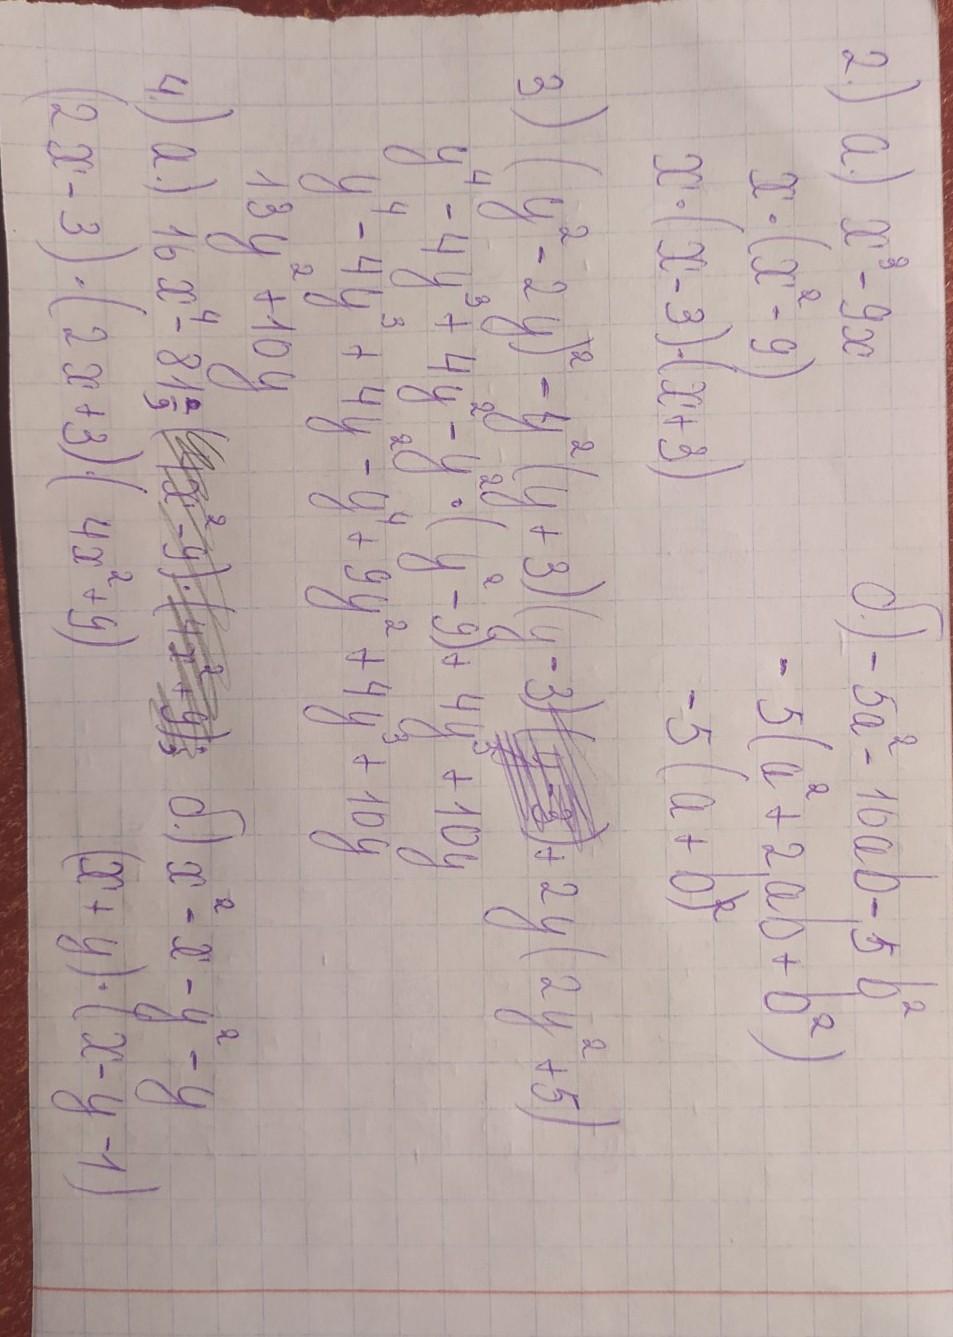 2.) а.) x³ - 9x
x · (x² - 9)
x · (x - 3) · (x + 3)
б.) - 5a² - 10ab - 5b²
- 5(a² + 2ab + b²)
- 5(a + b)²
3.) (y² - 2y)² - y²(y + 3)(y - 3) + 2y(2y² + 5)
y⁴ - 4y³ + 4y² - y² · (y² - 9) + 4y³ + 10y
y⁴ - 4y³ + 4y² - y⁴ + 9y² + 4y³ + 10y
13y² + 10y
4.) а.) 16x⁴ - 81
(2x - 3) · (2x + 3) · (4x² + 9)
б.) x² - x - y² - y
(x + y) · (x - y - 1)